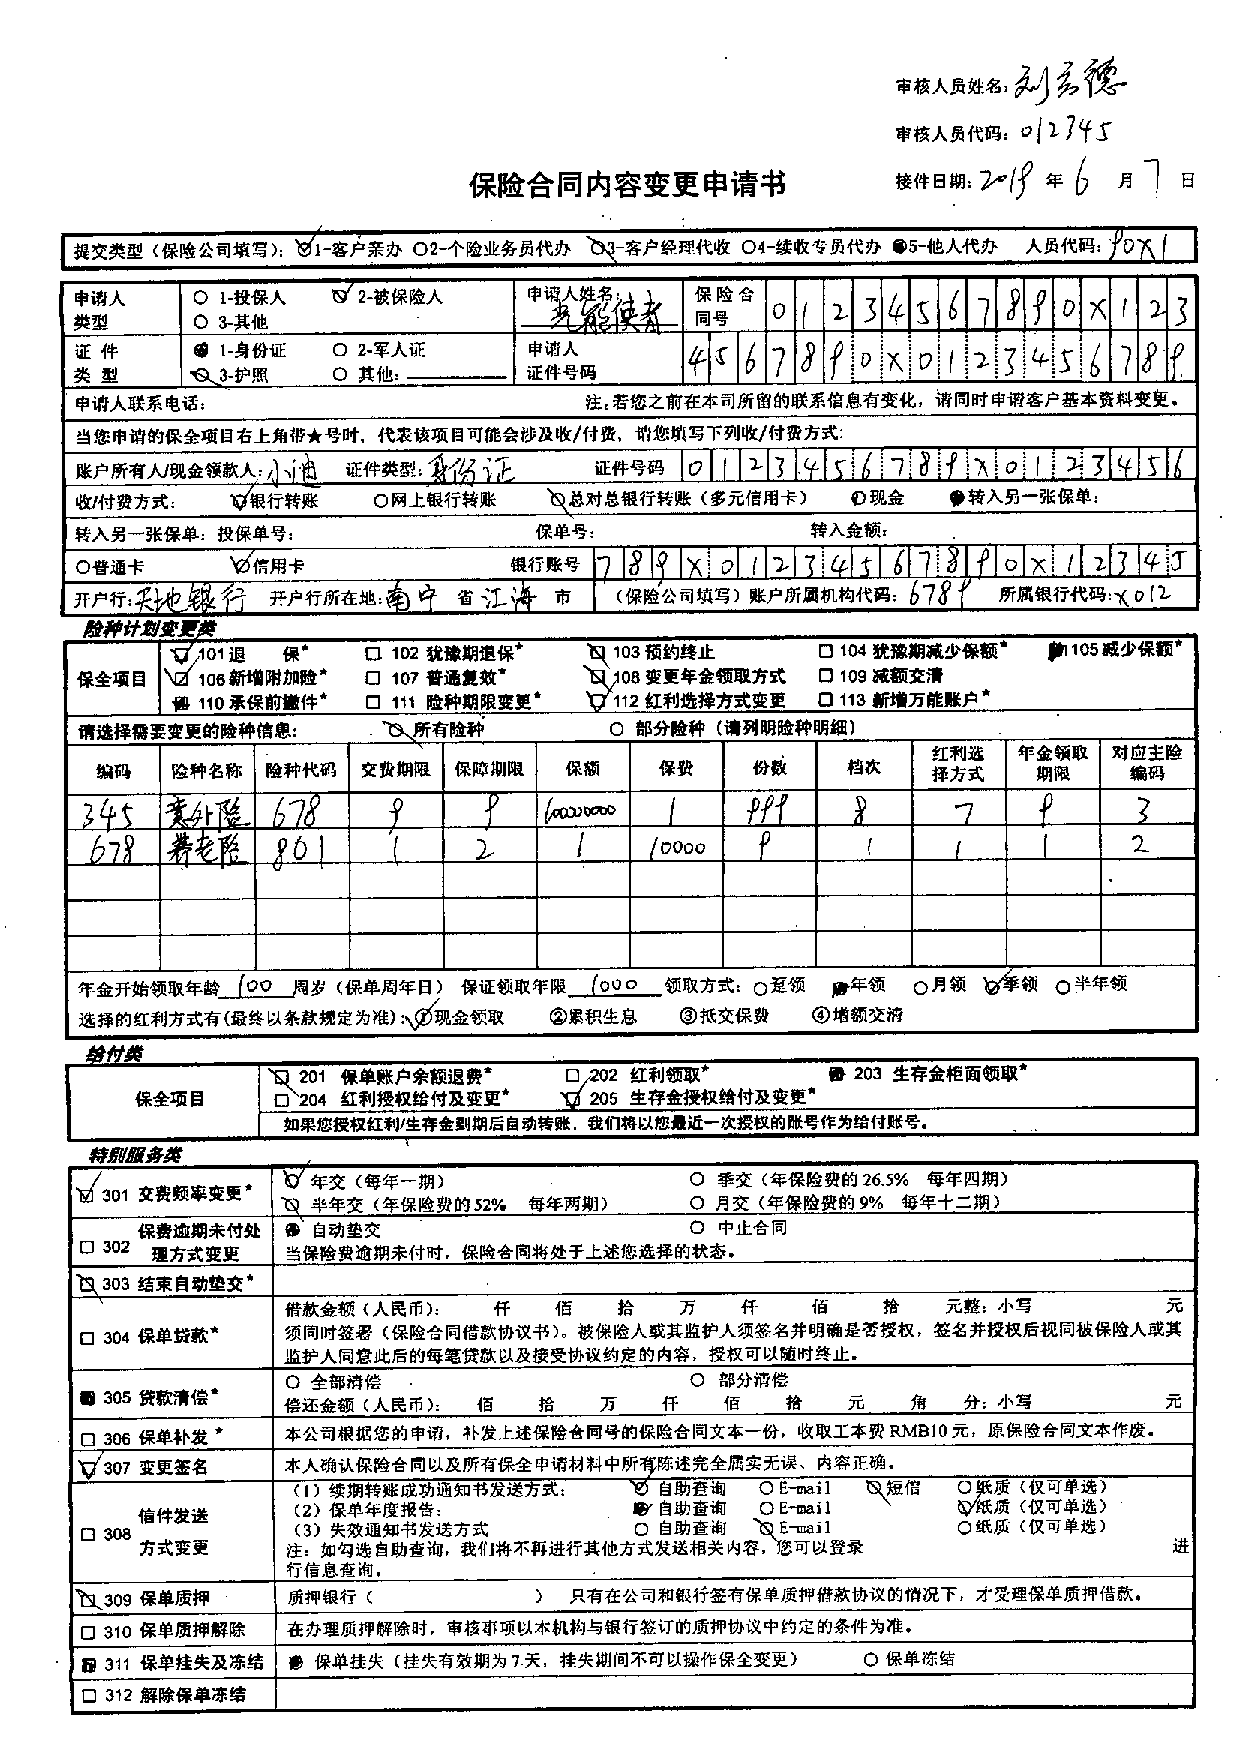 审核人员姓名:刘玄德
审核人员代码:012345
保险合同内容变更申请书
接件日期:2019年6月7日
提交类型(保险公司填写):1-客户亲办 2-个险业务员代办 3-客户经理代收 4-续收专员代办 5-他人代办 人员代码:90X1
申请人类型 1-投保人 2-被保险人 3-其他 申请人姓名:光能使者 保险合同号 01234567890X123
证件类型 1-身份证 2-军人证 3-护照 其他: 申请人证件号码 4567890X0123456789
申请人联系电话: 注:若您之前在本司所留的联系信息有变化,请同时申请客户基本资料变更。
当您申请的保全项目右上角带★号时,代表该项目可能会涉及收/付费,请您填写下列收/付费方式:
账户所有人/现金领款人:小迪 证件类型:身份证 证件号码 0123456789X0123456
收/付费方式: 银行转账 网上银行转账 总对总银行转账(多元信用卡) 现金 转入另一张保单:
转入另一张保单:投保单号: 保单号: 转入金额:
普通卡 信用卡 银行账号 789X01234567890X12345
开户行:天地银行 开户行所在地:南中省江海市 (保险公司填写)账户所属机构代码:6789 所属银行代码:X012
险种计划变更类
保全项目
101退 保* 102 犹豫期退保* 103 预约终止 104 犹豫期减少保额* 105减少保额*
106新增附加险* 107 普通复效* 108 变更年金领取方式 109 减额交清
110承保前撤件* 111 险种期限变更* 112红利选择方式变更 113 新增万能账户*
请选择需要变更的险种信息: 所有险种 部分险种(请列明险种明细)
编码 险种名称 险种代码 交费期限 保障期限 保额 保费 份数 档次 红利选择方式 年金领取期限 对应主险编码
345 意外险 678 9 9 100000000 1 999 8 7 9 3
678 养老险 801 1 2 1 10000 9 1 1 1 2
年金开始领取年龄 100 周岁(保单周年日) 保证领取年限 1000 领取方式:趸领 年领 月领 季领 半年领
选择的红利方式有(最终以条款规定为准):①现金领取 ②累积生息 ③抵交保费 ④增额交清
给付类
保全项目
201 保单账户余额退费* 202 红利领取* 203 生存金柜面领取*
204 红利授权给付及变更* 205 生存金授权给付及变更*
如果您授权红利/生存金到期后自动转账,我们将以您最近一次授权的账号作为给付账号。
特别服务类
301 交费频率变更* 年交(每年一期) 季交(年保险费的26.5% 每年四期)
半年交(年保险费的52% 每年两期) 月交(年保险费的9% 每年十二期)
302 保费逾期未付处理方式变更 自动垫交 中止合同
当保险费逾期未付时,保险合同将处于上述您选择的状态。
303 结束自动垫交*
304 保单贷款* 借款金额(人民币): 仟 佰 拾 万 仟 佰 拾 元整:小写 元
须同时签署(保险合同借款协议书)。被保险人或其监护人须签名并明确是否授权,签名并授权后视同被保险人或其
监护人同意此后的每笔贷款以及接受协议约定的内容,授权可以随时终止。
305 贷款清偿* 全部清偿 部分清偿
偿还金额(人民币): 佰 拾 万 仟 佰 拾 元 角 分:小写 元
306 保单补发* 本公司根据您的申请,补发上述保险合同号的保险合同文本一份,收取工本费RMB10元,原保险合同文本作废。
307 变更签名 本人确认保险合同以及所有保全申请材料中所有陈述完全属实无误、内容正确。
308 信件发送方式变更 (1)续期转账成功通知书发送方式: 自助查询 E-mail 短信 纸质(仅可单选)
(2)保单年度报告: 自助查询 E-mail 纸质(仅可单选)
(3)失效通知书发送方式 自助查询 E-mail 纸质(仅可单选)
注:如勾选自助查询,我们将不再进行其他方式发送相关内容,您可以登录 进
行信息查询。
309 保单质押 质押银行( ) 只有在公司和银行签有保单质押借款协议的情况下,才受理保单质押借款。
310 保单质押解除 在办理质押解除时,审核事项以本机构与银行签订的质押协议中约定的条件为准。
311 保单挂失及冻结 保单挂失(挂失有效期为7天,挂失期间不可以操作保全变更) 保单冻结
312 解除保单冻结